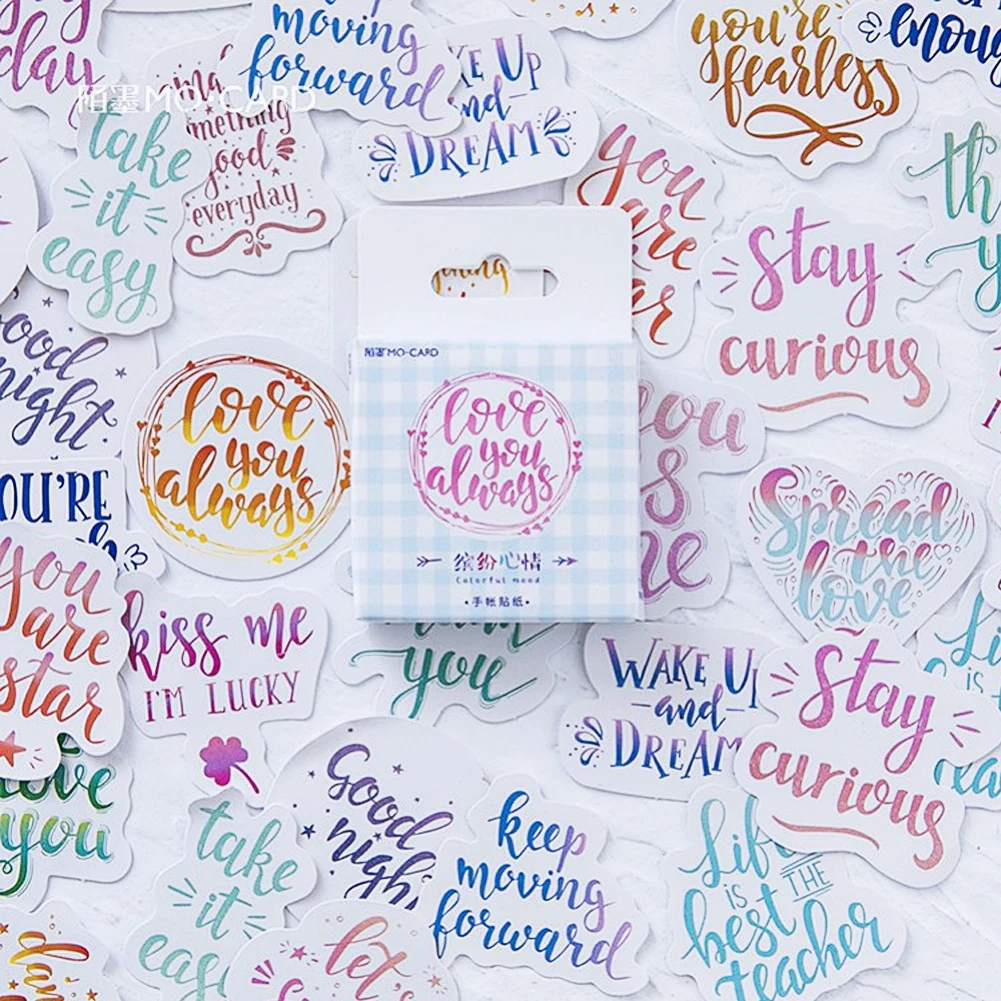 day
陌墨 MO·CARD
moving
forward
UP
and
DREAM
you're
fearless
enough
take
it
easy
something
good
everyday
you
are
stay
curious
good
night.
love
you
always
陌墨 MO·CARD
love
you
always
缤纷心情
Colorful mood
·手帐贴纸·
you
Spread
the
love
YOU'RE
you
are
star
kiss me
I'M LUCKY
you
WAKE UP
and
DREAM
stay
curious
love
you
good
night
take
it
easy
keep
moving
forward
Life
IS THE
best
teacher
let's